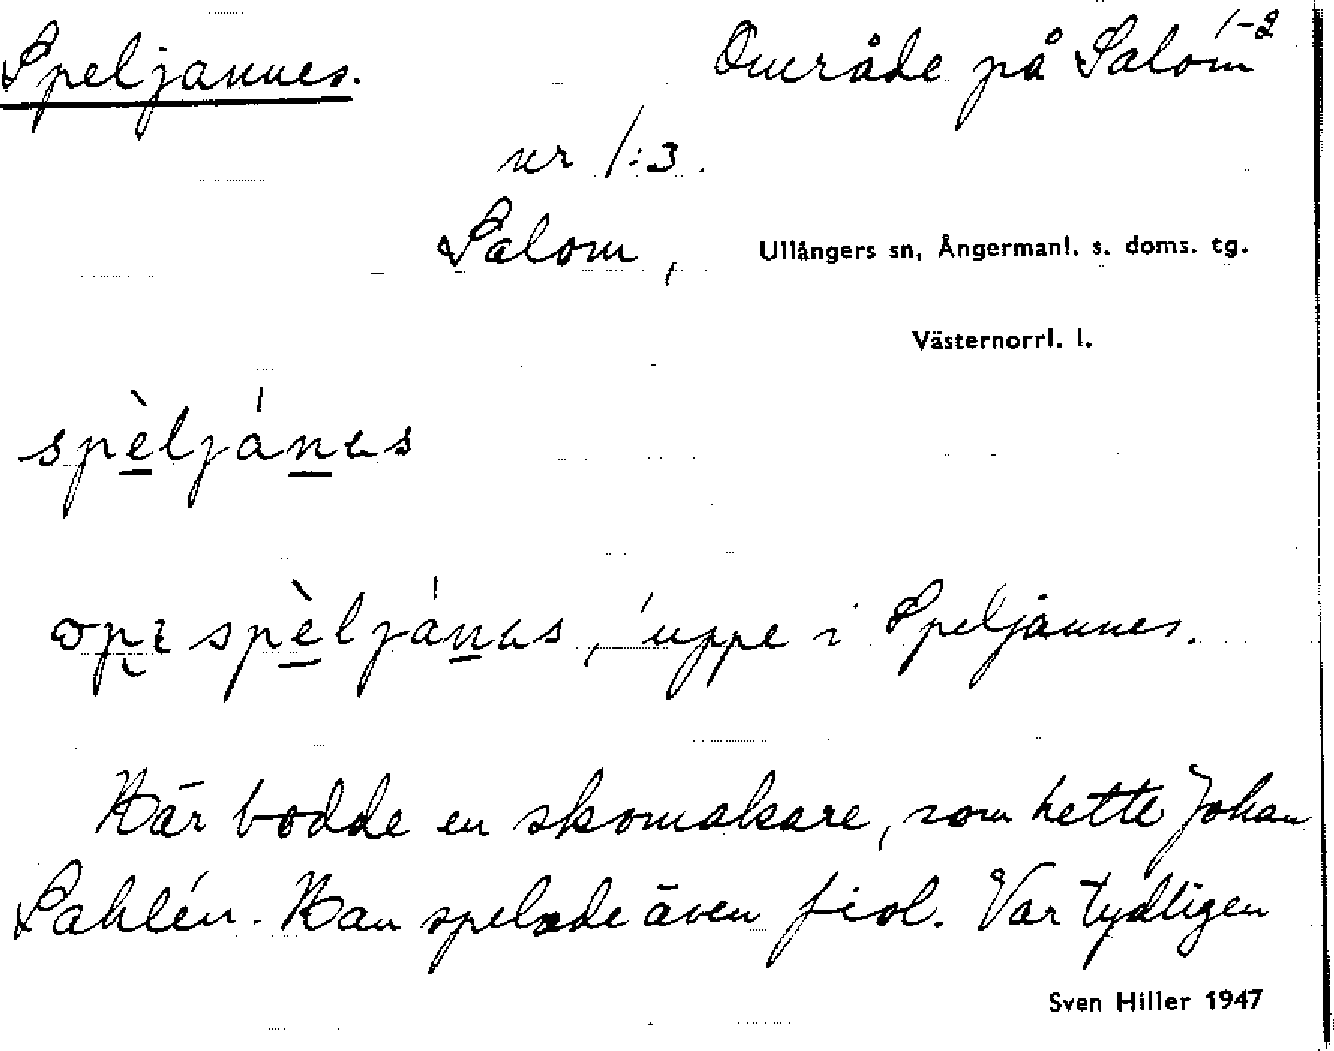 Speljannes. Område på Salom 1-2
nr 1:3.
Salom, Ullångers sn, Ångermanl. s. doms. tg.
Västernorrl. l.
spèljánɩs
opɩ spèljánɩs, 'uppe i Speljannes.
Här bodde en skomakare, som hette Johan
Sahlén. Han spelade även fiol. Var tydligen
Sven Hiller 1947